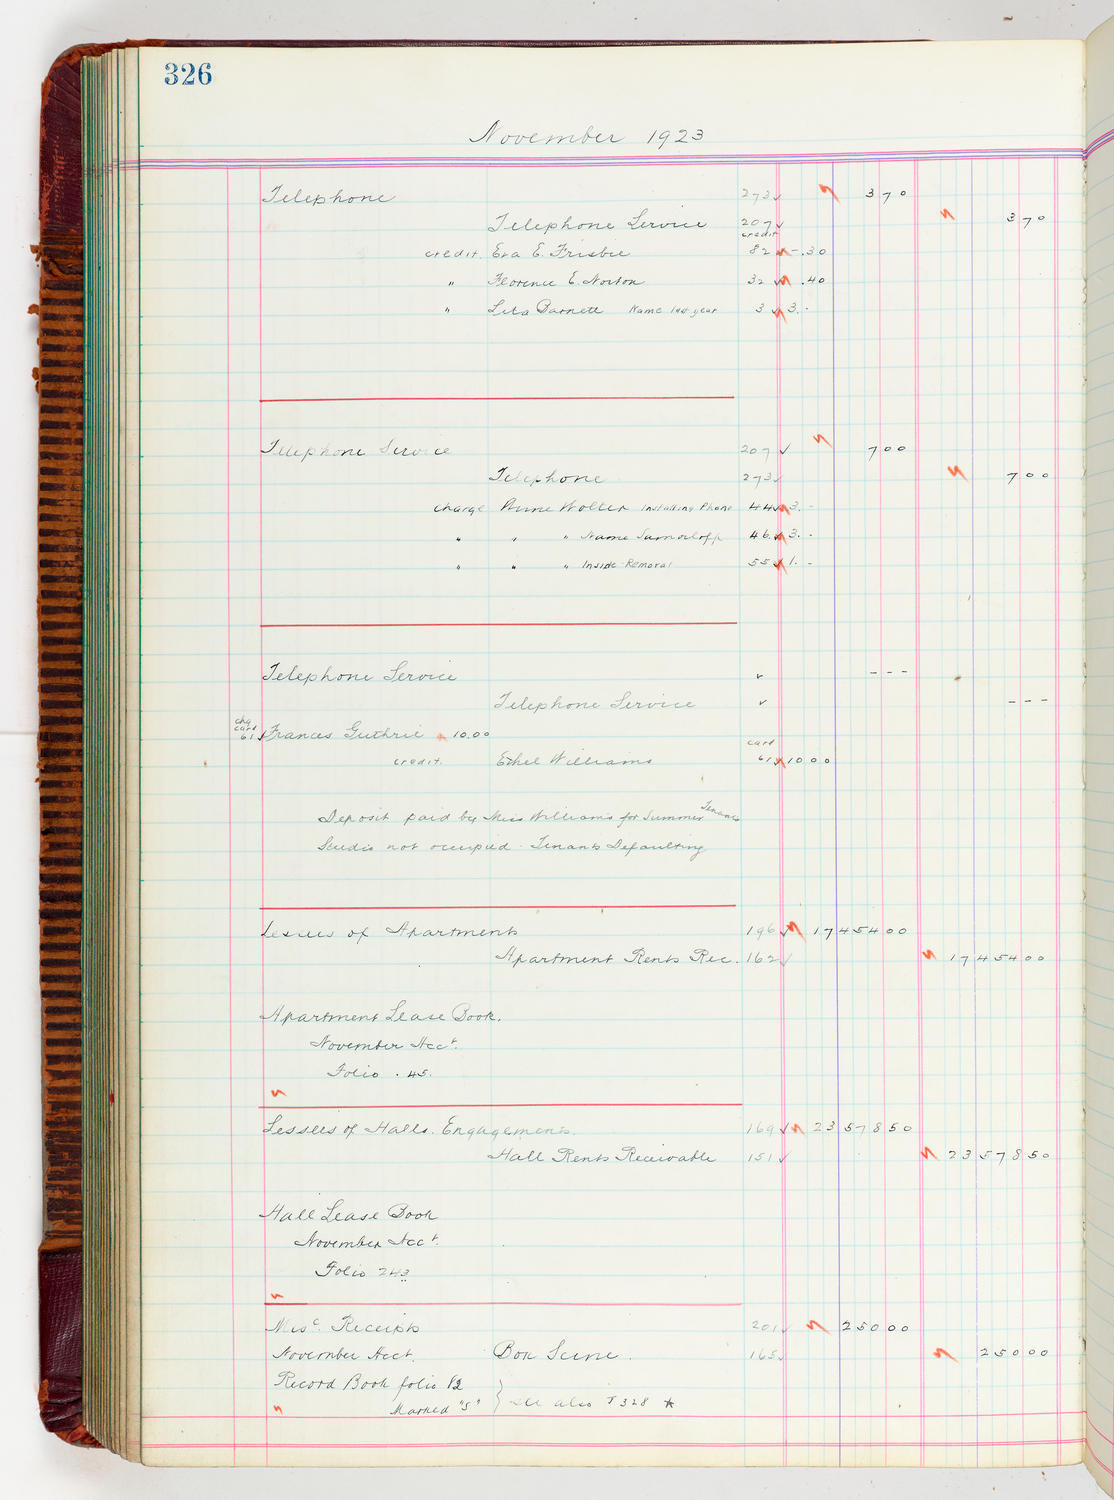 326
November 1923
Telephone 273 ✓ 3 7 0
Telephone Service 207 ✓ 3 7 0
credit
credit. Eva E. Frisbie 82 - .30
" Florence E. Norton 32 ✓ .40
" Leta Barnett Name last year 3 ✓ 3. -
Telephone Service 207 ✓ 7 0 0
Telephone 273 ✓ 7 0 0
charge Anne Wolter Installing Phone 44 ✓ 3. -
" " " Name 46 ✓ 3. -
" " " Inside Removal 55 ✓ 1. -
Telephone Service ✓ - - -
Telephone Service ✓ - - -
chg card 61 ✓ Frances Guthrie 10.00
card
credit. Ethel Williams 61 ✓ 10 0 0
Deposit paid by Miss Williams for Summer Tenants
Studio not occupied - Tenants Defaulting
Lessees of Apartments 196 ✓ 17 4 5 4 0 0
Apartment Rents Rec. 162 ✓ 17 4 5 4 0 0
Apartment Lease Book.
November Acct.
Folio . 45.
Lessees of Halls. Engagements. 169 ✓ 23 5 7 8 5 0
Hall Rents Receivable 151 ✓ 23 5 7 8 5 0
Hall Lease Book
November Acct.
Folio 243
Misc. Receipts 201 ✓ 2 5 0 0 0
November Acct. Box Scene. 165 ✓ 2 5 0 0 0
Record Book folio 12
Marked "S" } see also F 328 *